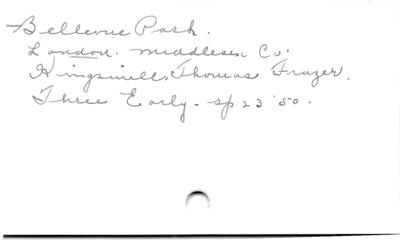 Bellevue Park.
London. Middlesex Co.
Kingsmill, Thomas Frazer.
Three Early - sp 23 '50.